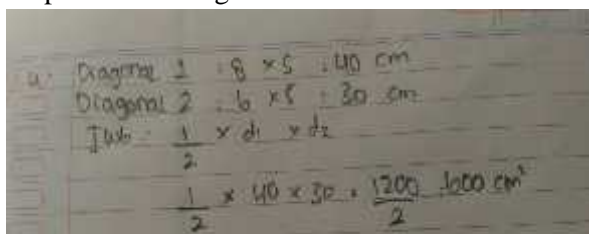 4. Diagonal 1 : 8 × 5 : 40 cm
Diagonal 2 : 6 × 5 : 30 cm
Jwb : 1/2 × d1 × d2
1/2 × 40 × 30 = 1200/2 = 600 cm²